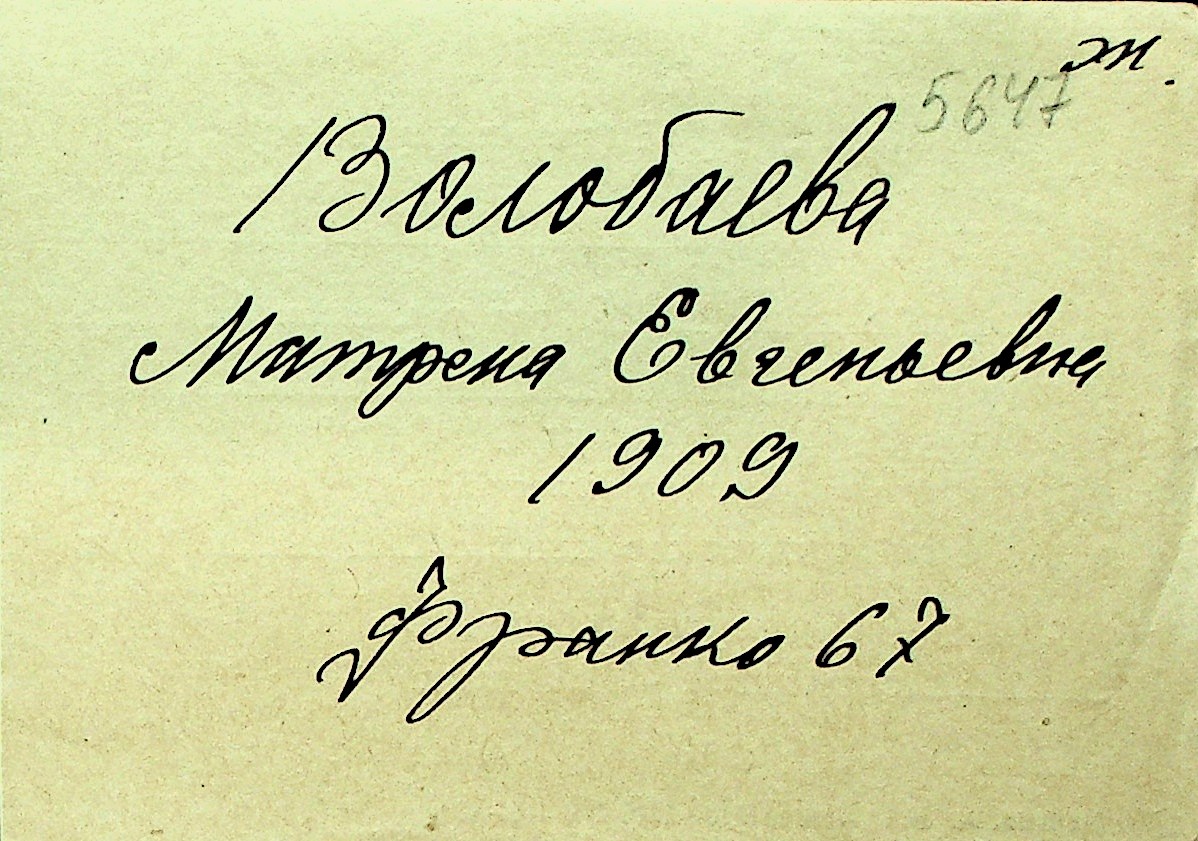 ж.
5647
Волобаева
Матрена Евгеньевна
1909
Франко 67